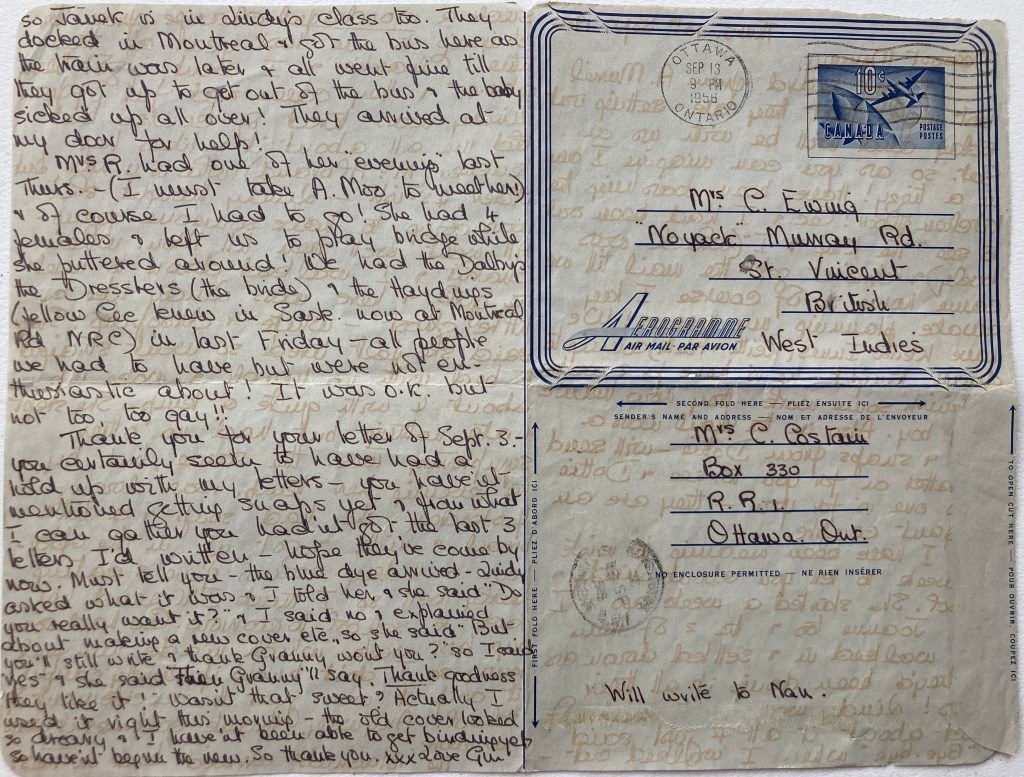 so Janek is in Lindy's class too. They
docked in Montreal & got the bus here as
the train was later & all went fine till
they got up to get out of the bus & the baby
sicked up all over! They arrived at
my door for help!
Mrs R. had one of her "evenings" last
Thurs. - (I must take A. Moo to meet her!)
& of course I had to go! She had 4
females & left us to play bridge while
she puttered around! We had the Dalbys
the Dresslers (the bride) & the Haydings
(fellow Cec knew in Sask. now at Montreal
Rd NRC) in last Friday - all people
we had to have but were not en-
thusiastic about! It was o.k. but
not too, too gay!!
Thank you for your letter of Sept. 3. -
you certainly seem to have had a
hold up with my letters - you have'nt
mentioned getting snaps yet & from what
I can gather you had'nt got the last 3
letters I'd written - hope they've come by
now. Must tell you - the blue dye arrived - Lindy
asked what it was & I told her & she said "Do
you really want it?" & I said no & explained
about making a new cover etc., so she said "But
you'll still write & thank Granny won't you?" so I said
"yes" & she said "Then Granny'll say, Thank goodness
they like it!" Wasn't that sweet? Actually I
used it right this morning - the old cover looked
so dreary & I have'nt been able to get binding yet
so have'nt begun the new. So thank you. xxx Love Gin
OTTAWA
SEP 13
9 PM
1956
ONTARIO
10¢
CANADA
POSTAGE
POSTES
Mrs C. Ewing
"Noyack" Murray Rd.
St. Vincent
British
West Indies
AEROGRAMME
AIR MAIL · PAR AVION
SECOND FOLD HERE — PLIEZ ENSUITE ICI
SENDER'S NAME AND ADDRESS — NOM ET ADRESSE DE L'ENVOYEUR
Mrs C. Costain
Box 330
R.R. 1.
Ottawa. Ont.
NO ENCLOSURE PERMITTED — NE RIEN INSÉRER
FIRST FOLD HERE — PLIEZ D'ABORD ICI
TO OPEN CUT HERE — POUR OUVRIR, COUPEZ ICI
Will write to Nan.